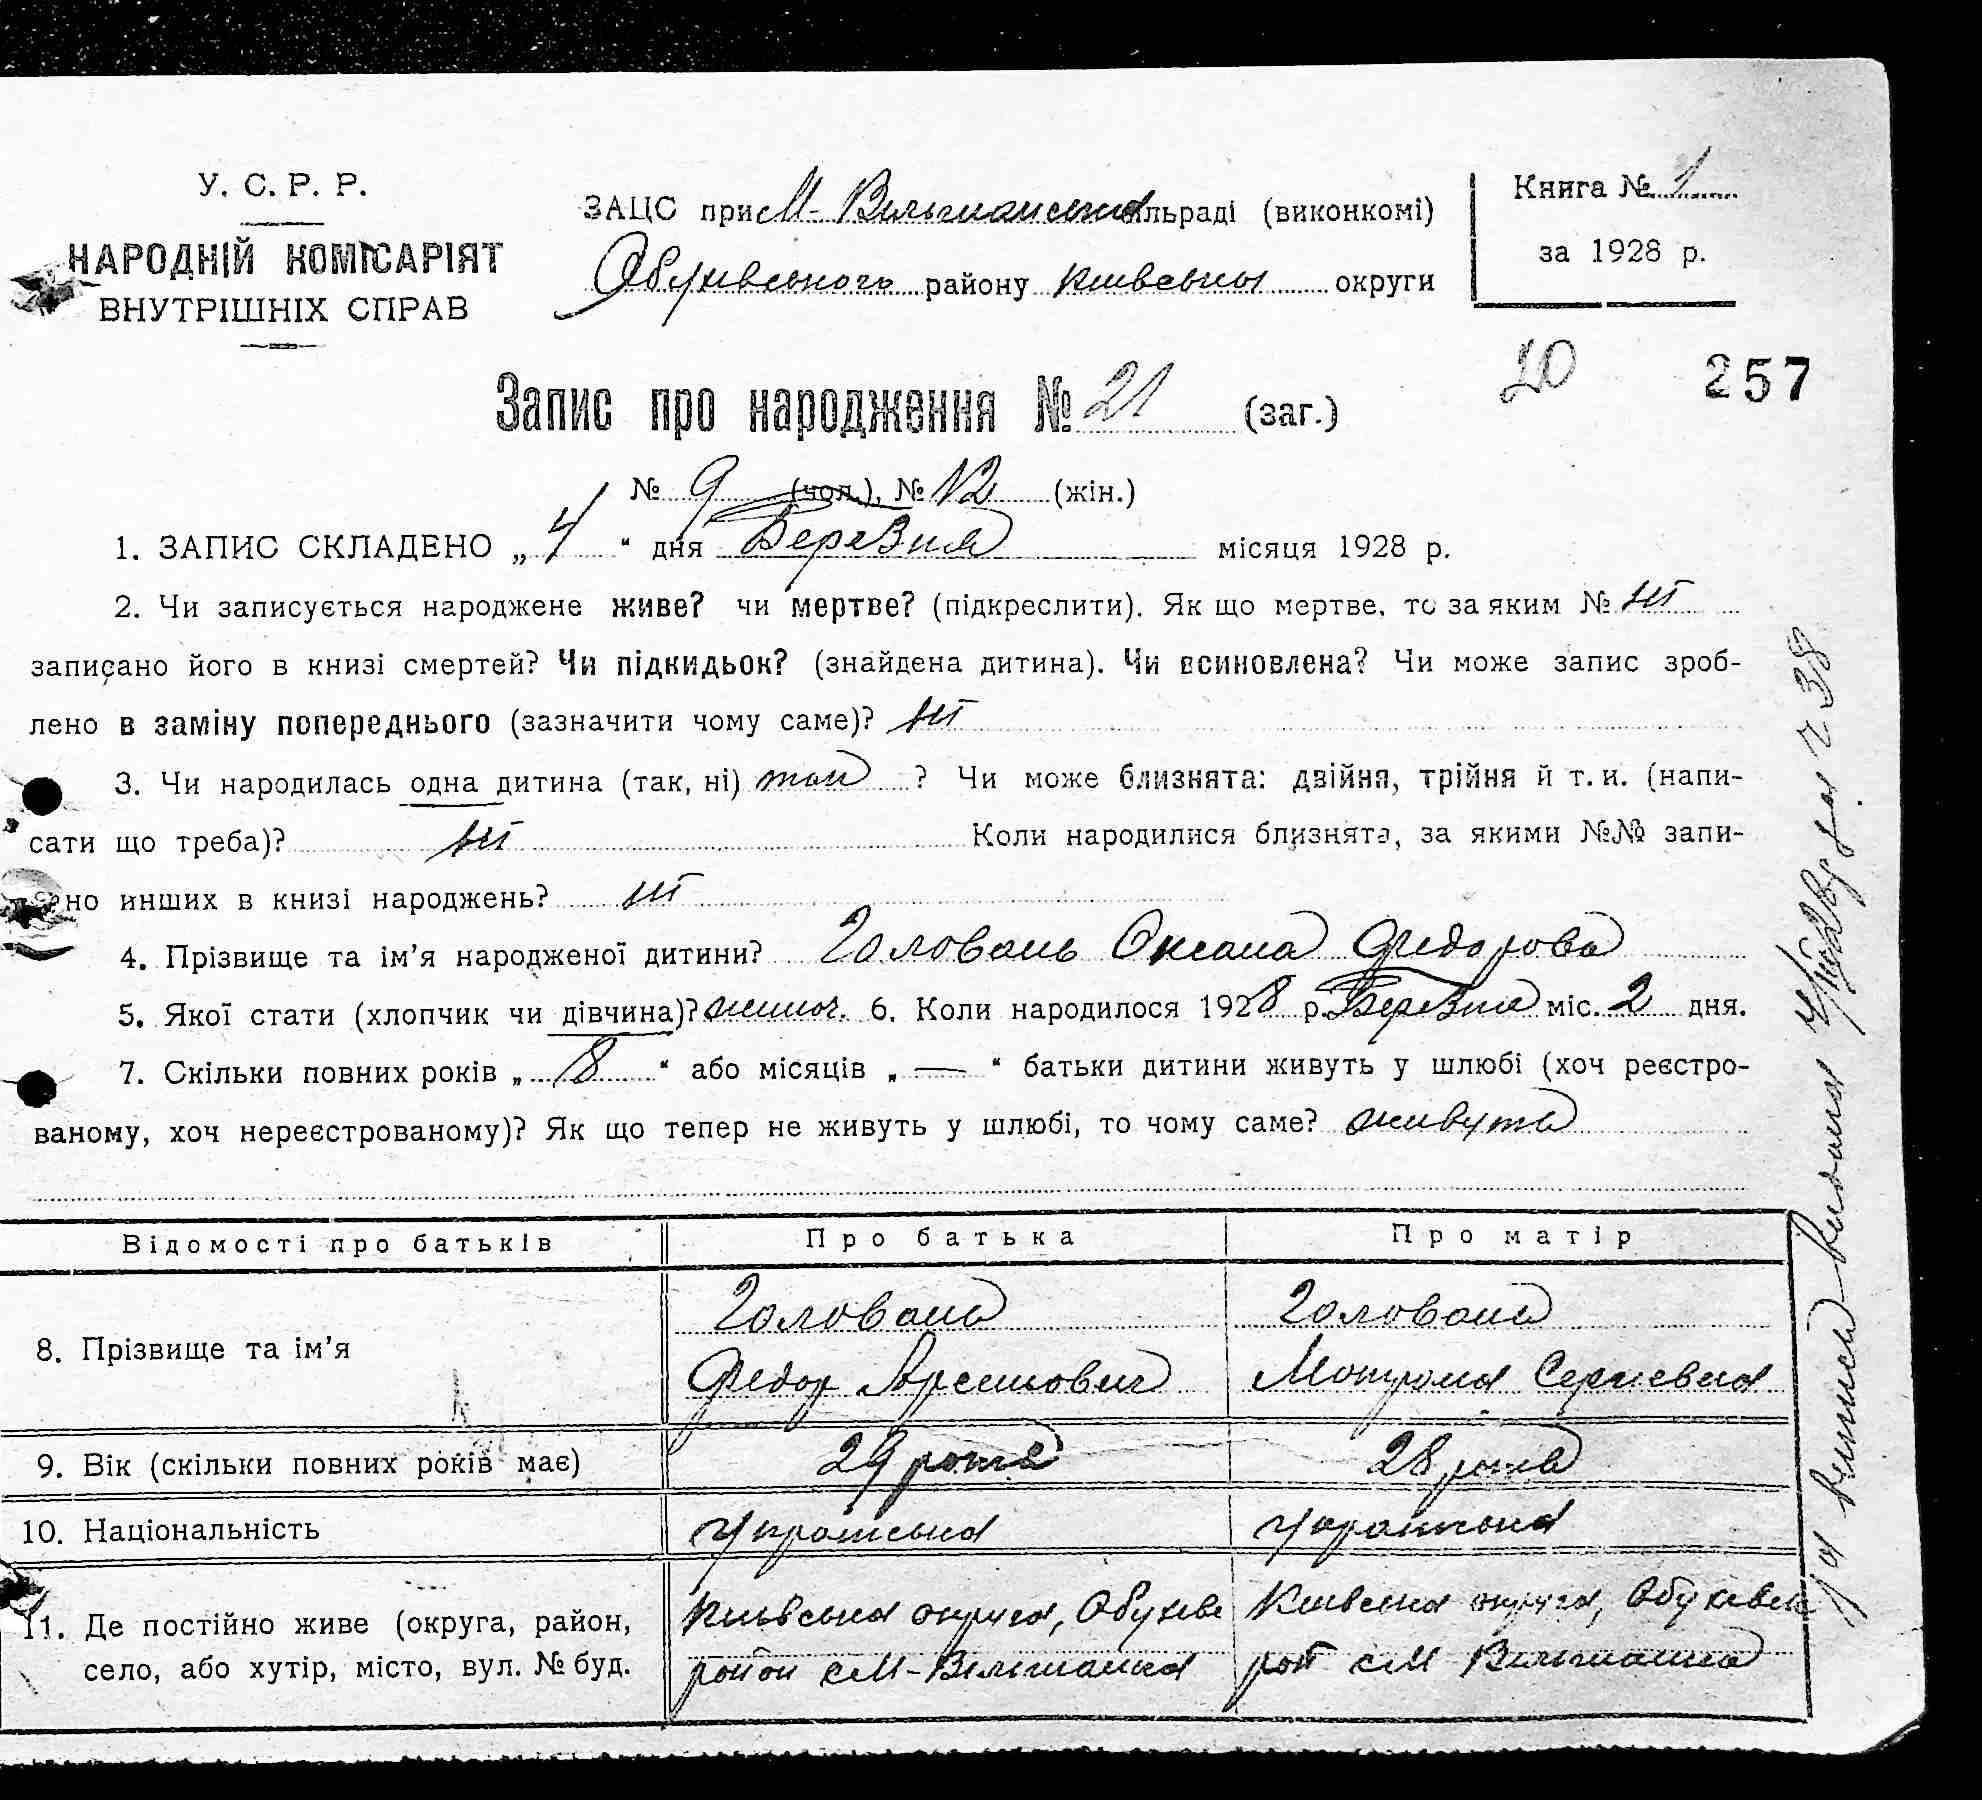 У. С. Р. Р.
НАРОДНІЙ КОМІСАРІЯТ
ВНУТРІШНІХ СПРАВ
ЗАЦС при М-Вільшанській сільраді (виконкомі)
Обухівського району Київської округи
Книга № 1
за 1928 р.
20 257
Запис про народження № 21 (заг.)
№ 9 (чол.), № 12 (жін.)
1. ЗАПИС СКЛАДЕНО „ 4 “ дня Березня місяця 1928 р.
2. Чи записується народжене живе? чи мертве? (підкреслити). Як що мертве, то за яким № ні
записано його в книзі смертей? Чи підкидьок? (знайдена дитина). Чи всиновлена? Чи може запис зроб-
лено в заміну попереднього (зазначити чому саме)? ні
3. Чи народилась одна дитина (так, ні) так ? Чи може близнята: двійня, трійня й т. и. (напи-
сати що треба)? ні Коли народилися близнята, за якими №№ запи-
но инших в книзі народжень? ні
4. Прізвище та ім’я народженої дитини? Головань Оксана Федорова
5. Якої стати (хлопчик чи дівчина)? жіноч. 6. Коли народилося 1928 р. Березня міс. 2 дня.
7. Скільки повних років „ 8 “ або місяців „ — “ батьки дитини живуть у шлюбі (хоч реєстро-
ваному, хоч нереєстрованому)? Як що тепер не живуть у шлюбі, то чому саме? живуть
Відомості про батьків Про батька Про матір
8. Прізвище та ім’я Головань Головань
Федор Арсенович Мотрона Сергіевна
9. Вік (скільки повних років має) 29 років 28 років
10. Національність Українська Українська
11. Де постійно живе (округа, район, Київська округа, Обухівс Київська округа, Обухівськ
село, або хутір, місто, вул. № буд. район с М-Вільшанка рай с М Вільшанка
виписъ видана 38